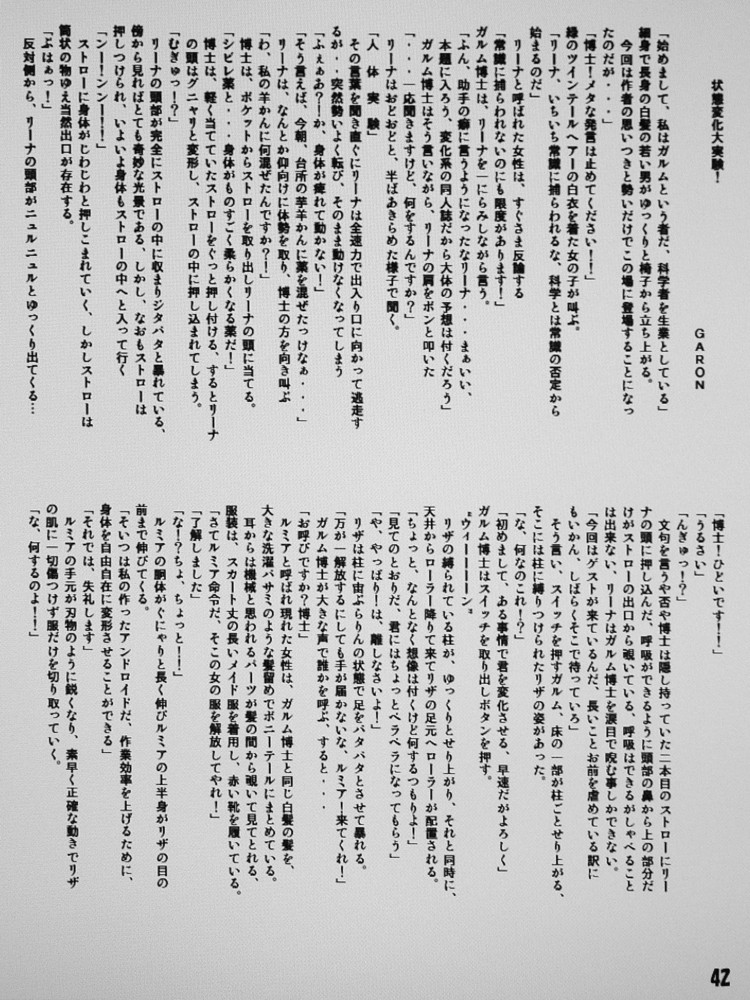 状態変化大実験！
ＧＡＲＯＮ
「始めまして、私はガルムという者だ、科学者を生業としている」
細身で長身の白髪の若い男がゆっくりと椅子から立ち上がる。
今回は作者の思いつきと勢いだけでこの場に登場することになっ
たのだが・・・」
「博士！メタな発言は止めてください！！」
緑のツインテールヘアーの白衣を着た女の子が叫ぶ。
「リーナ、いちいち常識に捕らわれるな、科学とは常識の否定から
始まるのだ」
リーナと呼ばれた女性は、すぐさま反論する
「常識に捕らわれないのにも限度があります！」
ガルム博士は、リーナを一にらみしながら言う。
「ふん、助手の癖に言うようになったなリーナ・・・まぁいい、
本題に入ろう、変化系の同人誌だから大体の予想は付くだろう」
ガルム博士はそう言いながら、リーナの肩をポンと叩いた
「・・・一応聞きますけど、何をするんですか？」
リーナはおどおどと、半ばあきらめた様子で聞く。
「人体実験」
その言葉を聞き直ぐにリーナは全速力で出入り口に向かって逃走す
るが・・突然勢いよく転び、そのまま動けなくなってしまう
「ふぇぁあ？！か、身体が痺れて動かない！」
「そう言えば、今朝、台所の芋羊かんに薬を混ぜたっけなぁ・・・」
リーナは、なんとか仰向けに体勢を取り、博士の方を向き叫ぶ
「わ、私の羊かんに何混ぜたんですか？！」
博士は、ポケットからストローを取り出しリーナの頭に当てる。
「シビレ薬と・・・身体がものすごく柔らかくなる薬だ！」
博士は、軽く当てていたストローをぐっと押し付ける、するとリーナ
の頭はグニャリと変形し、ストローの中に押し込まれてしまう。
「むぎゅっ！？」
リーナの頭部が完全にストローの中に収まりジタバタと暴れている、
傍から見ればとても奇妙な光景である、しかし、なおもストローは
押しつけられ、いよいよ身体もストローの中へと入って行く
「ンー！ンンー！！」
ストローに身体がじわじわと押しこまれていく、しかしストローは
筒状の物ゆえ当然出口が存在する。
「ぷはぁっ！」
反対側から、リーナの頭部がニュルニュルとゆっくり出てくる…
「博士！ひどいです！！」
「うるさい」
「んぎゅっ！？」
文句を言うや否や博士は隠し持っていた二本目のストローにリー
ナの頭に押し込んだ、呼吸ができるように頭部の鼻から上の部分だ
けがストローの出口から覗いている、呼吸はできるがしゃべること
は出来ない、リーナはガルム博士を涙目で睨む事しかできない。
「今回はゲストが来ているんだ、長いことお前を虐めている訳に
もいかん、しばらくそこで待っていろ」
そう言い、スイッチを押すガルム、床の一部が柱ごとせり上がる、
そこには柱に縛りつけられたリザの姿があった。
「な、何なのこれ！？」
「初めまして、ある事情で君を変化させる、早速だがよろしく」
ガルム博士はスイッチを取り出しボタンを押す。
〝ウィーーーーン〟
リザの縛られている柱が、ゆっくりとせり上がり、それと同時に、
天井からローラー降りて来てリザの足元へローラーが配置される。
「ちょっと、なんとなく想像は付くけど何するつもりよ！」
「見てのとおりだ、君にはちょっとペラペラになってもらう」
「や、やっぱり！は、離しなさいよ！」
リザは柱に宙ぶらりんの状態で足をバタバタとさせて暴れる。
「万が一解放するにしても手が届かないな、ルミア！来てくれ！」
ガルム博士が大きな声で誰かを呼ぶ、すると・・・
「お呼びですか？博士」
ルミアと呼ばれ現れた女性は、ガルム博士と同じ白髪の髪を、
大きな洗濯バサミのような髪留めでポニーテールにまとめている。
耳からは機械と思われるパーツが髪の間から覗いて見てとれる、
服装は、スカート丈の長いメイド服を着用し、赤い靴を履いている。
「さてルミア命令だ、そこの女の服を解放してやれ！」
「了解しました」
「な！？ちょ、ちょっと！！」
ルミアの胴体がぐにゃりと長く伸びルミアの上半身がリザの目の
前まで伸びてくる。
「そいつは私の作ったアンドロイドだ、作業効率を上げるために、
身体を自由自在に変形させることができる」
「それでは、失礼します」
ルミアの手元が刃物のように鋭くなり、素早く正確な動きでリザ
の肌に一切傷つけず服だけを切り取っていく。
「な、何するのよ！！」
42